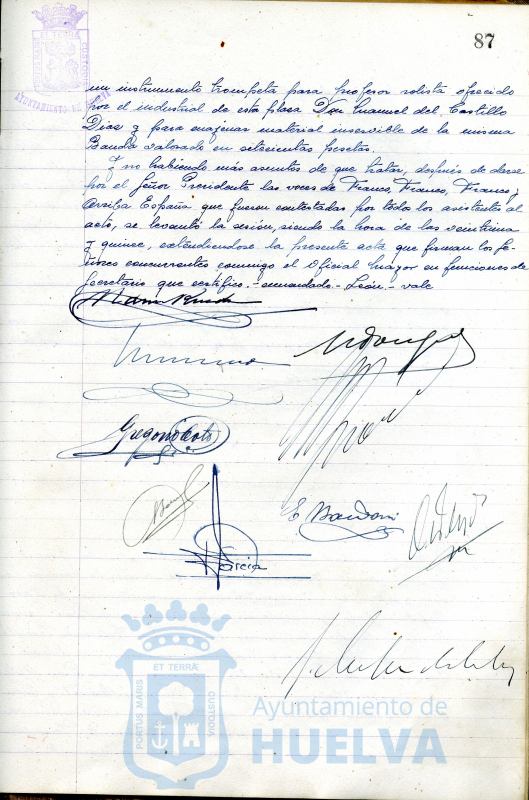 87
ET TERRA
CUSTODIA
AYUNTAMIENTO DE HUELVA
un instrumento trompeta para profesor solista ofrecido
por el industrial de esta plaza Don Manuel del Castillo
Díaz y para enajenar material inservible de la misma
Banda valorado en setecientas pesetas.
Y no habiendo más asuntos de que tratar, después de darse
por el Señor Presidente las voces de Franco, Franco, Franco y
Arriba España que fueron contestadas por todos los asistentes al
acto, se levantó la sesión, siendo la hora de las veintiuna
y quince, extendiéndose la presente acta que firman los Se-
ñores concurrentes conmigo el Oficial Mayor en funciones de
Secretario que certifico.- enmendado - León - vale
Gregorio
E. Bardoni
García
PORTUS MARIS
ET TERRA
CUSTODIA
Ayuntamiento de
HUELVA